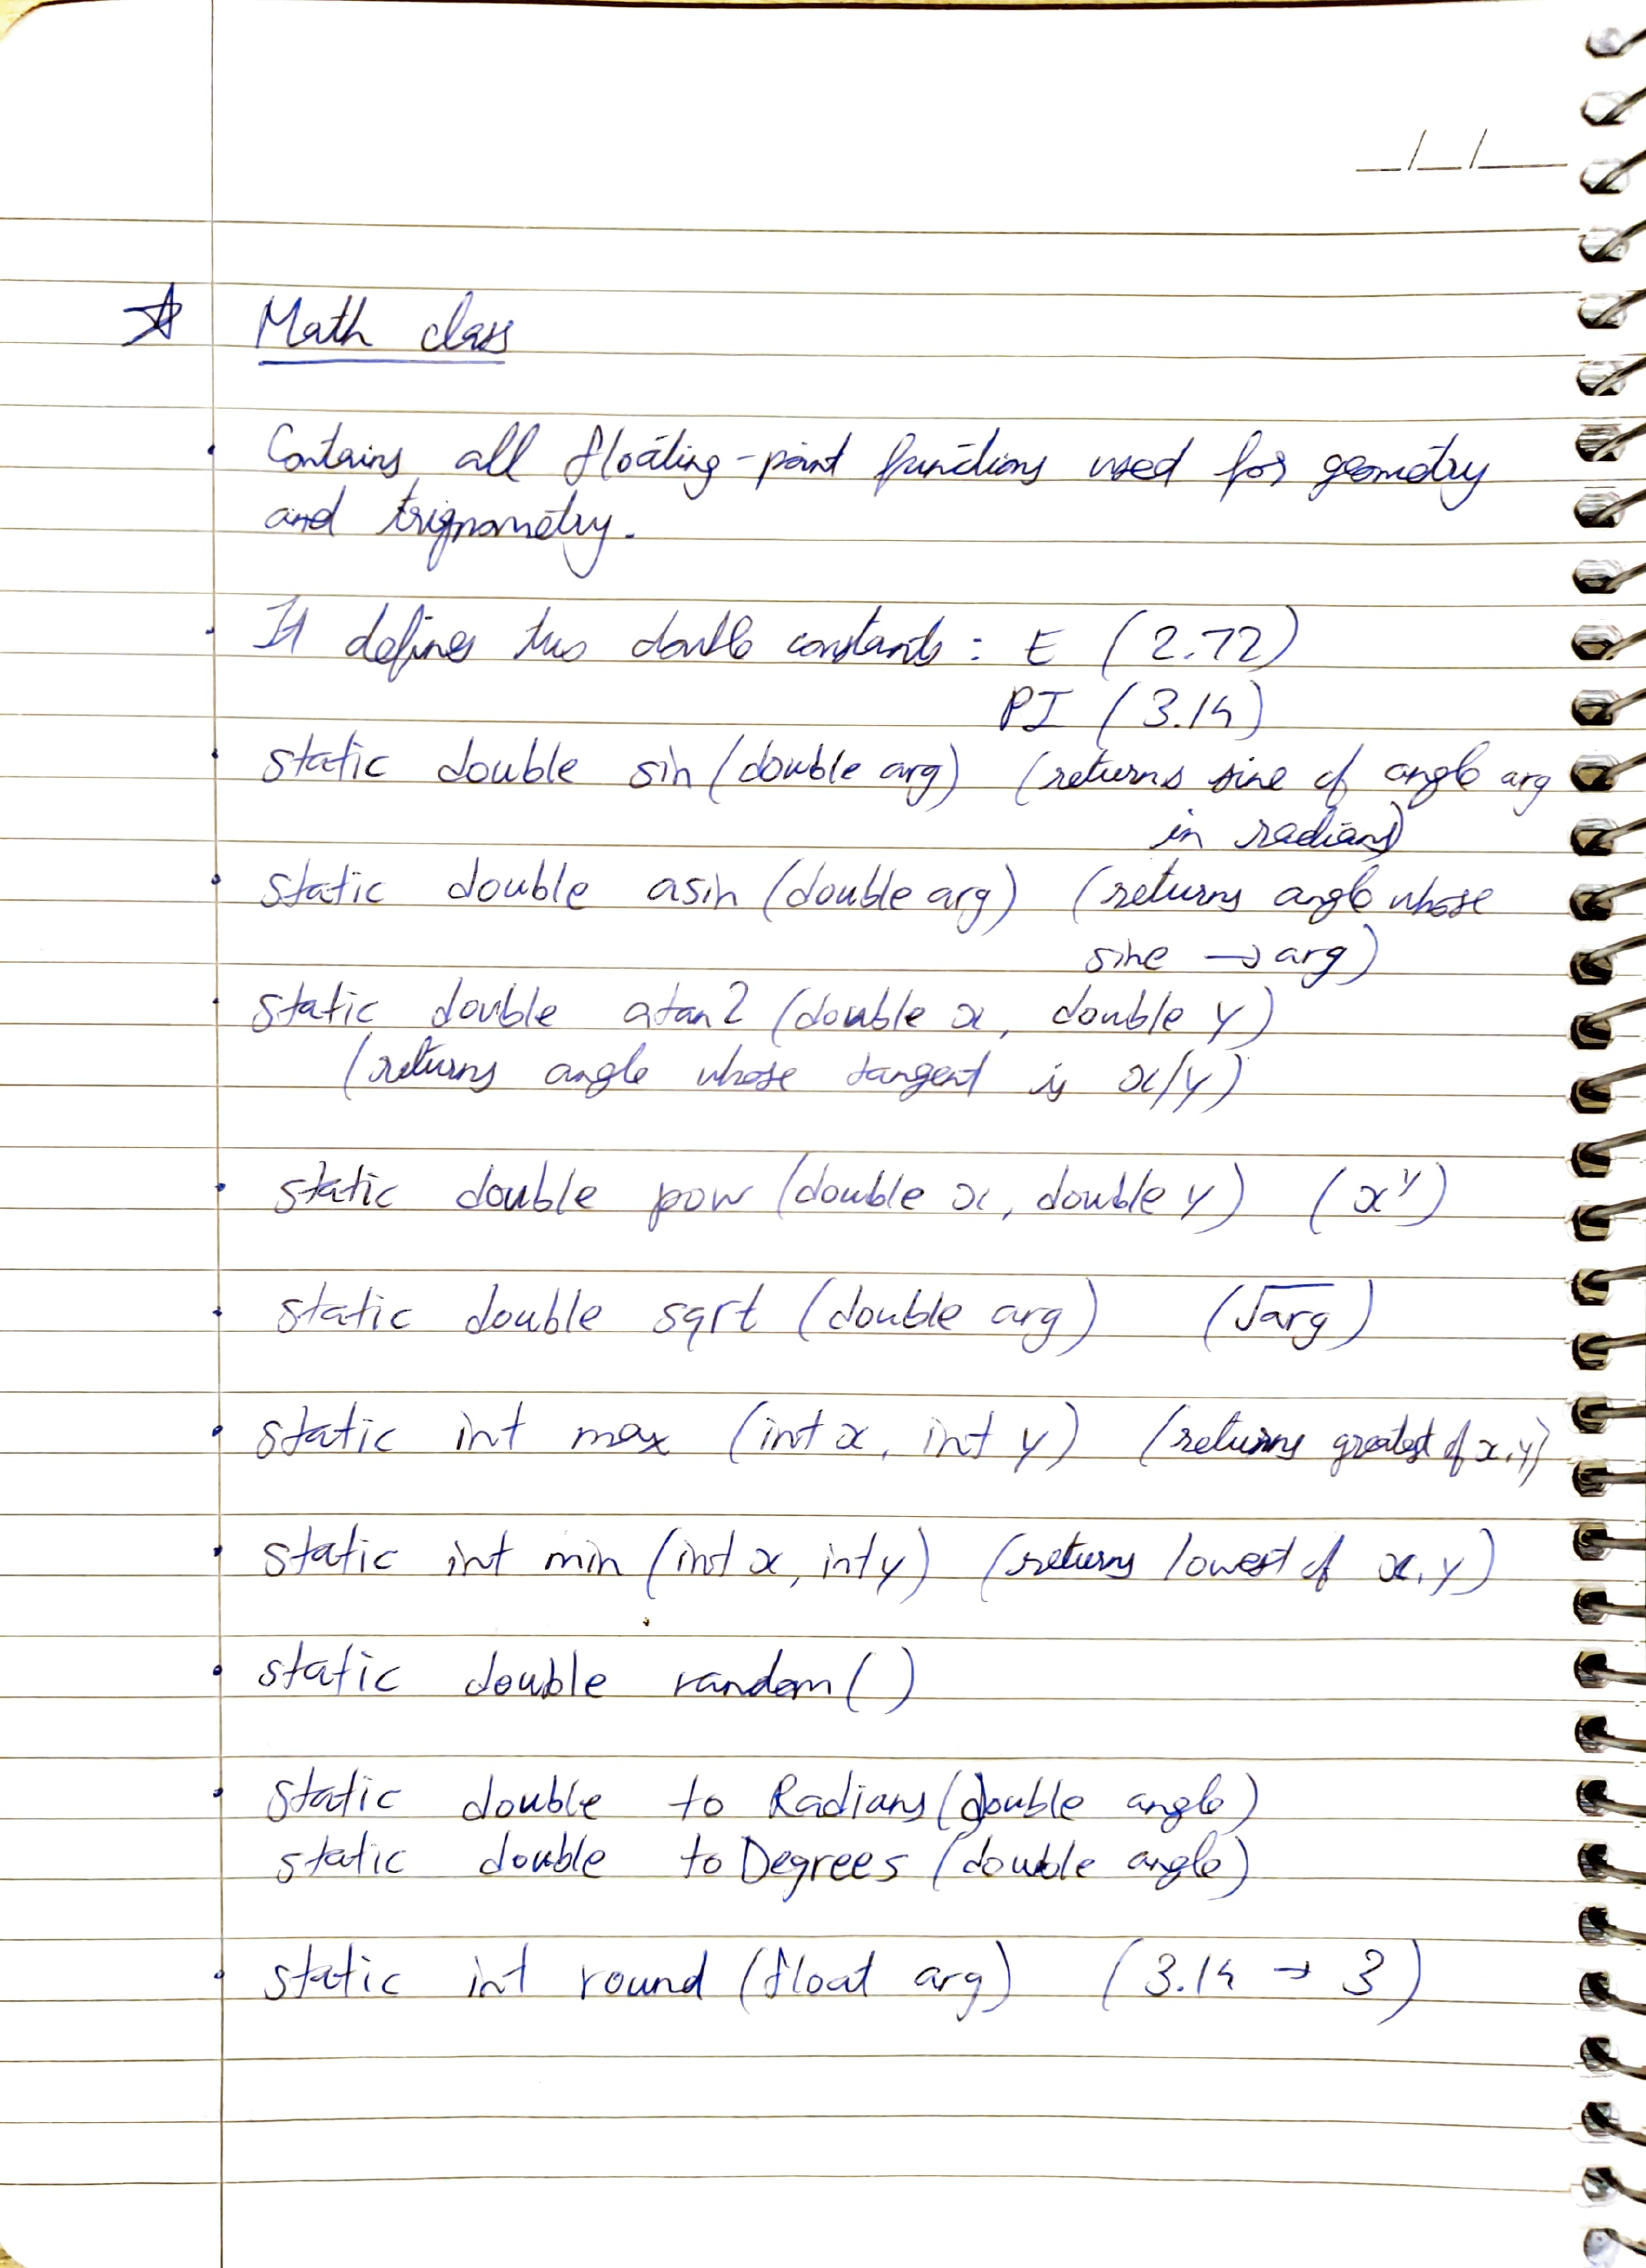 ☆ Math class
• Contains all floating-point functions used for geometry
and trignometry.
• It defines two double constants : E (2.72)
PI (3.14)
• static double sin (double arg) (returns sine of angle arg
in radians)
• static double asin (double arg) (returns angle whose
sine → arg)
• static double atan2 (double x, double y)
(returns angle whose tangent is x/y)
• static double pow (double x, double y) (xʸ)
• static double sqrt (double arg) (√arg)
• static int max (int x, int y) (returns greatest of x,y)
• static int min (int x, int y) (returns lowest of x,y)
• static double random ( )
• static double to Radians (double angle)
static double to Degrees (double angle)
• static int round (float arg) (3.14 → 3)